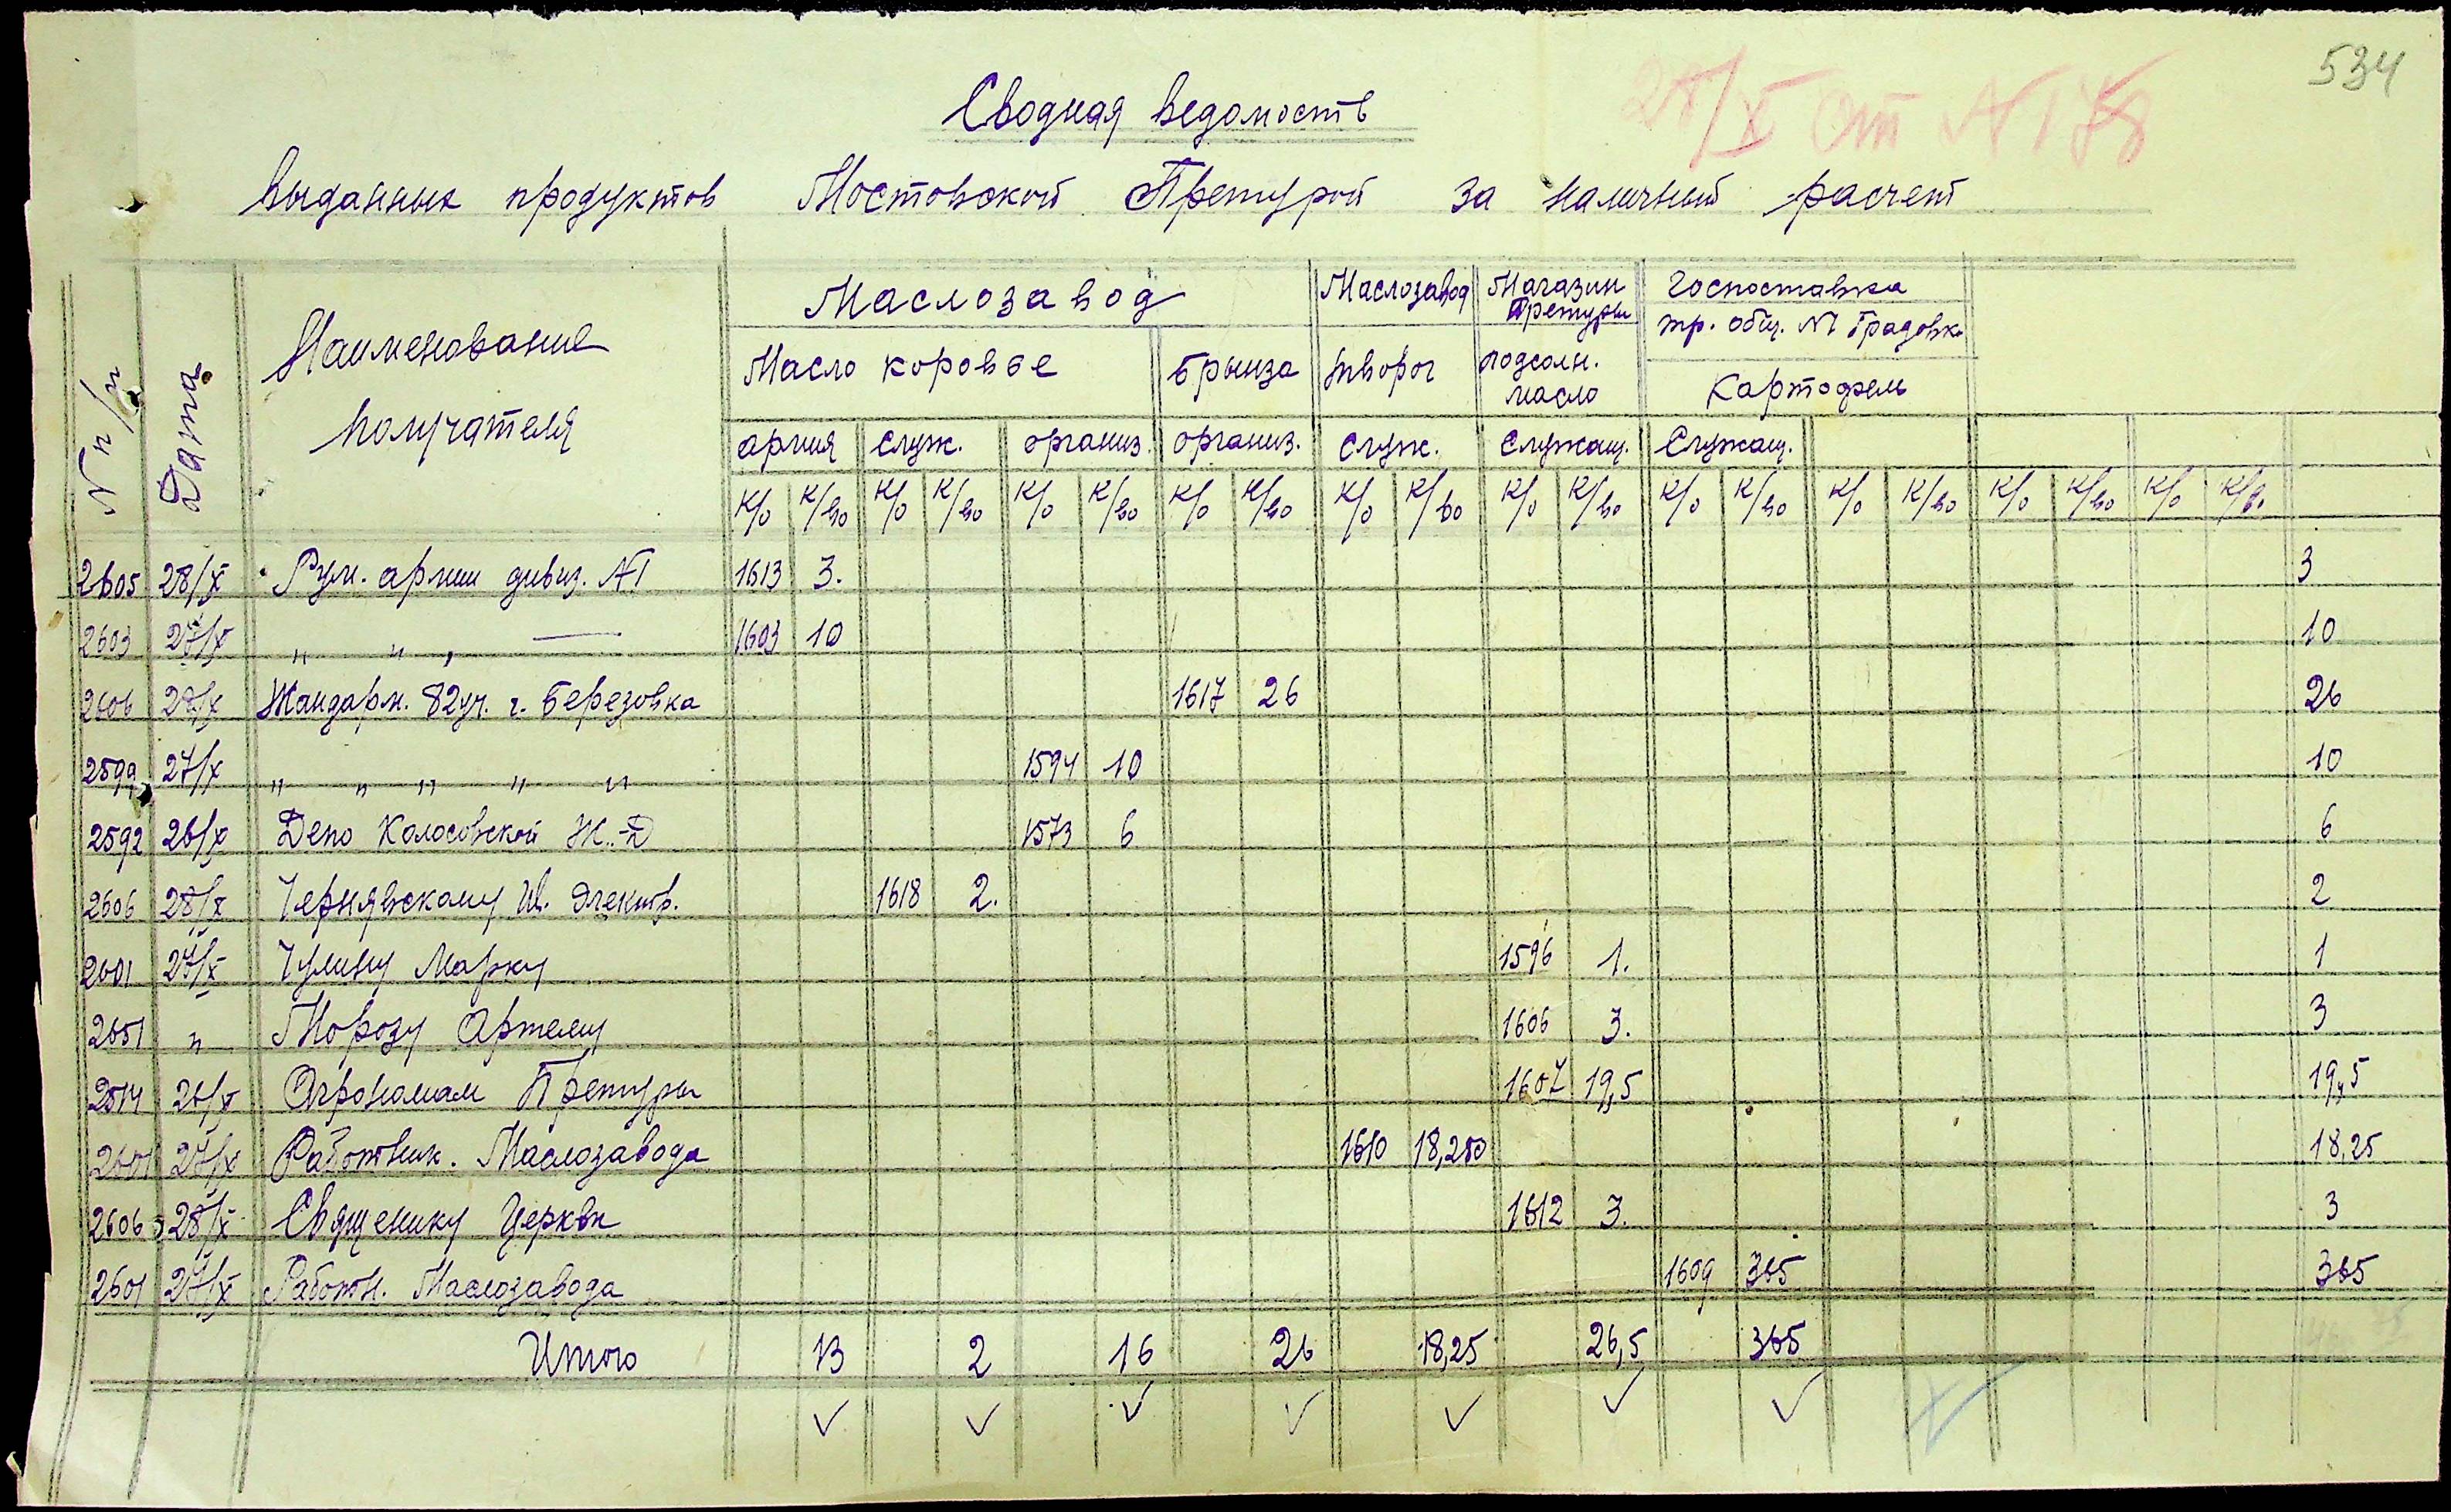 534
28/X от N 178
Сводная ведомость
выданных продуктов Мостовской Претурой за наличный расчет
N п/п Дата Наименование получателя Маслозавод Маслозавод Магазин Претуры Госпоставка тр. общ. N1 Градовка
Масло коровье Брынза творог подсолн. масло Картофель
армия служ. организ. организ. служ. служащ. Служащ.
К/о К/во К/о К/во К/о К/во К/о К/во К/о К/во К/о К/во К/о К/во К/о К/во К/о К/во К/о К/во
2605 28/X Рум. армии дивиз. N1 1613 3. 3
2603 27/X „ „ , — 1603 10 10
2606 28/X Жандарм. 82 уч. г. Березовка 1617 26 26
2599 27/X „ „ „ „ „ 1594 10 10
2592 26/X Депо Колосовской Ж.-Д 1573 6 6
2606 28/X Чернявскому Ив. Электр. 1618 2. 2
2601 27/X Чулину Марку 1596 1. 1
2651 „ Морозу Артему 1606 3. 3
26/X Агрономам Претуры 1607 19,5 19,5
2601 27/X Работник. Маслозавода 1610 18,250 18,25
2606 28/X Священику Церкви 1612 3. 3
2601 27/X Работн. Маслозавода 1609 365 365
Итого 13 2 16 26 18,25 26,5 365